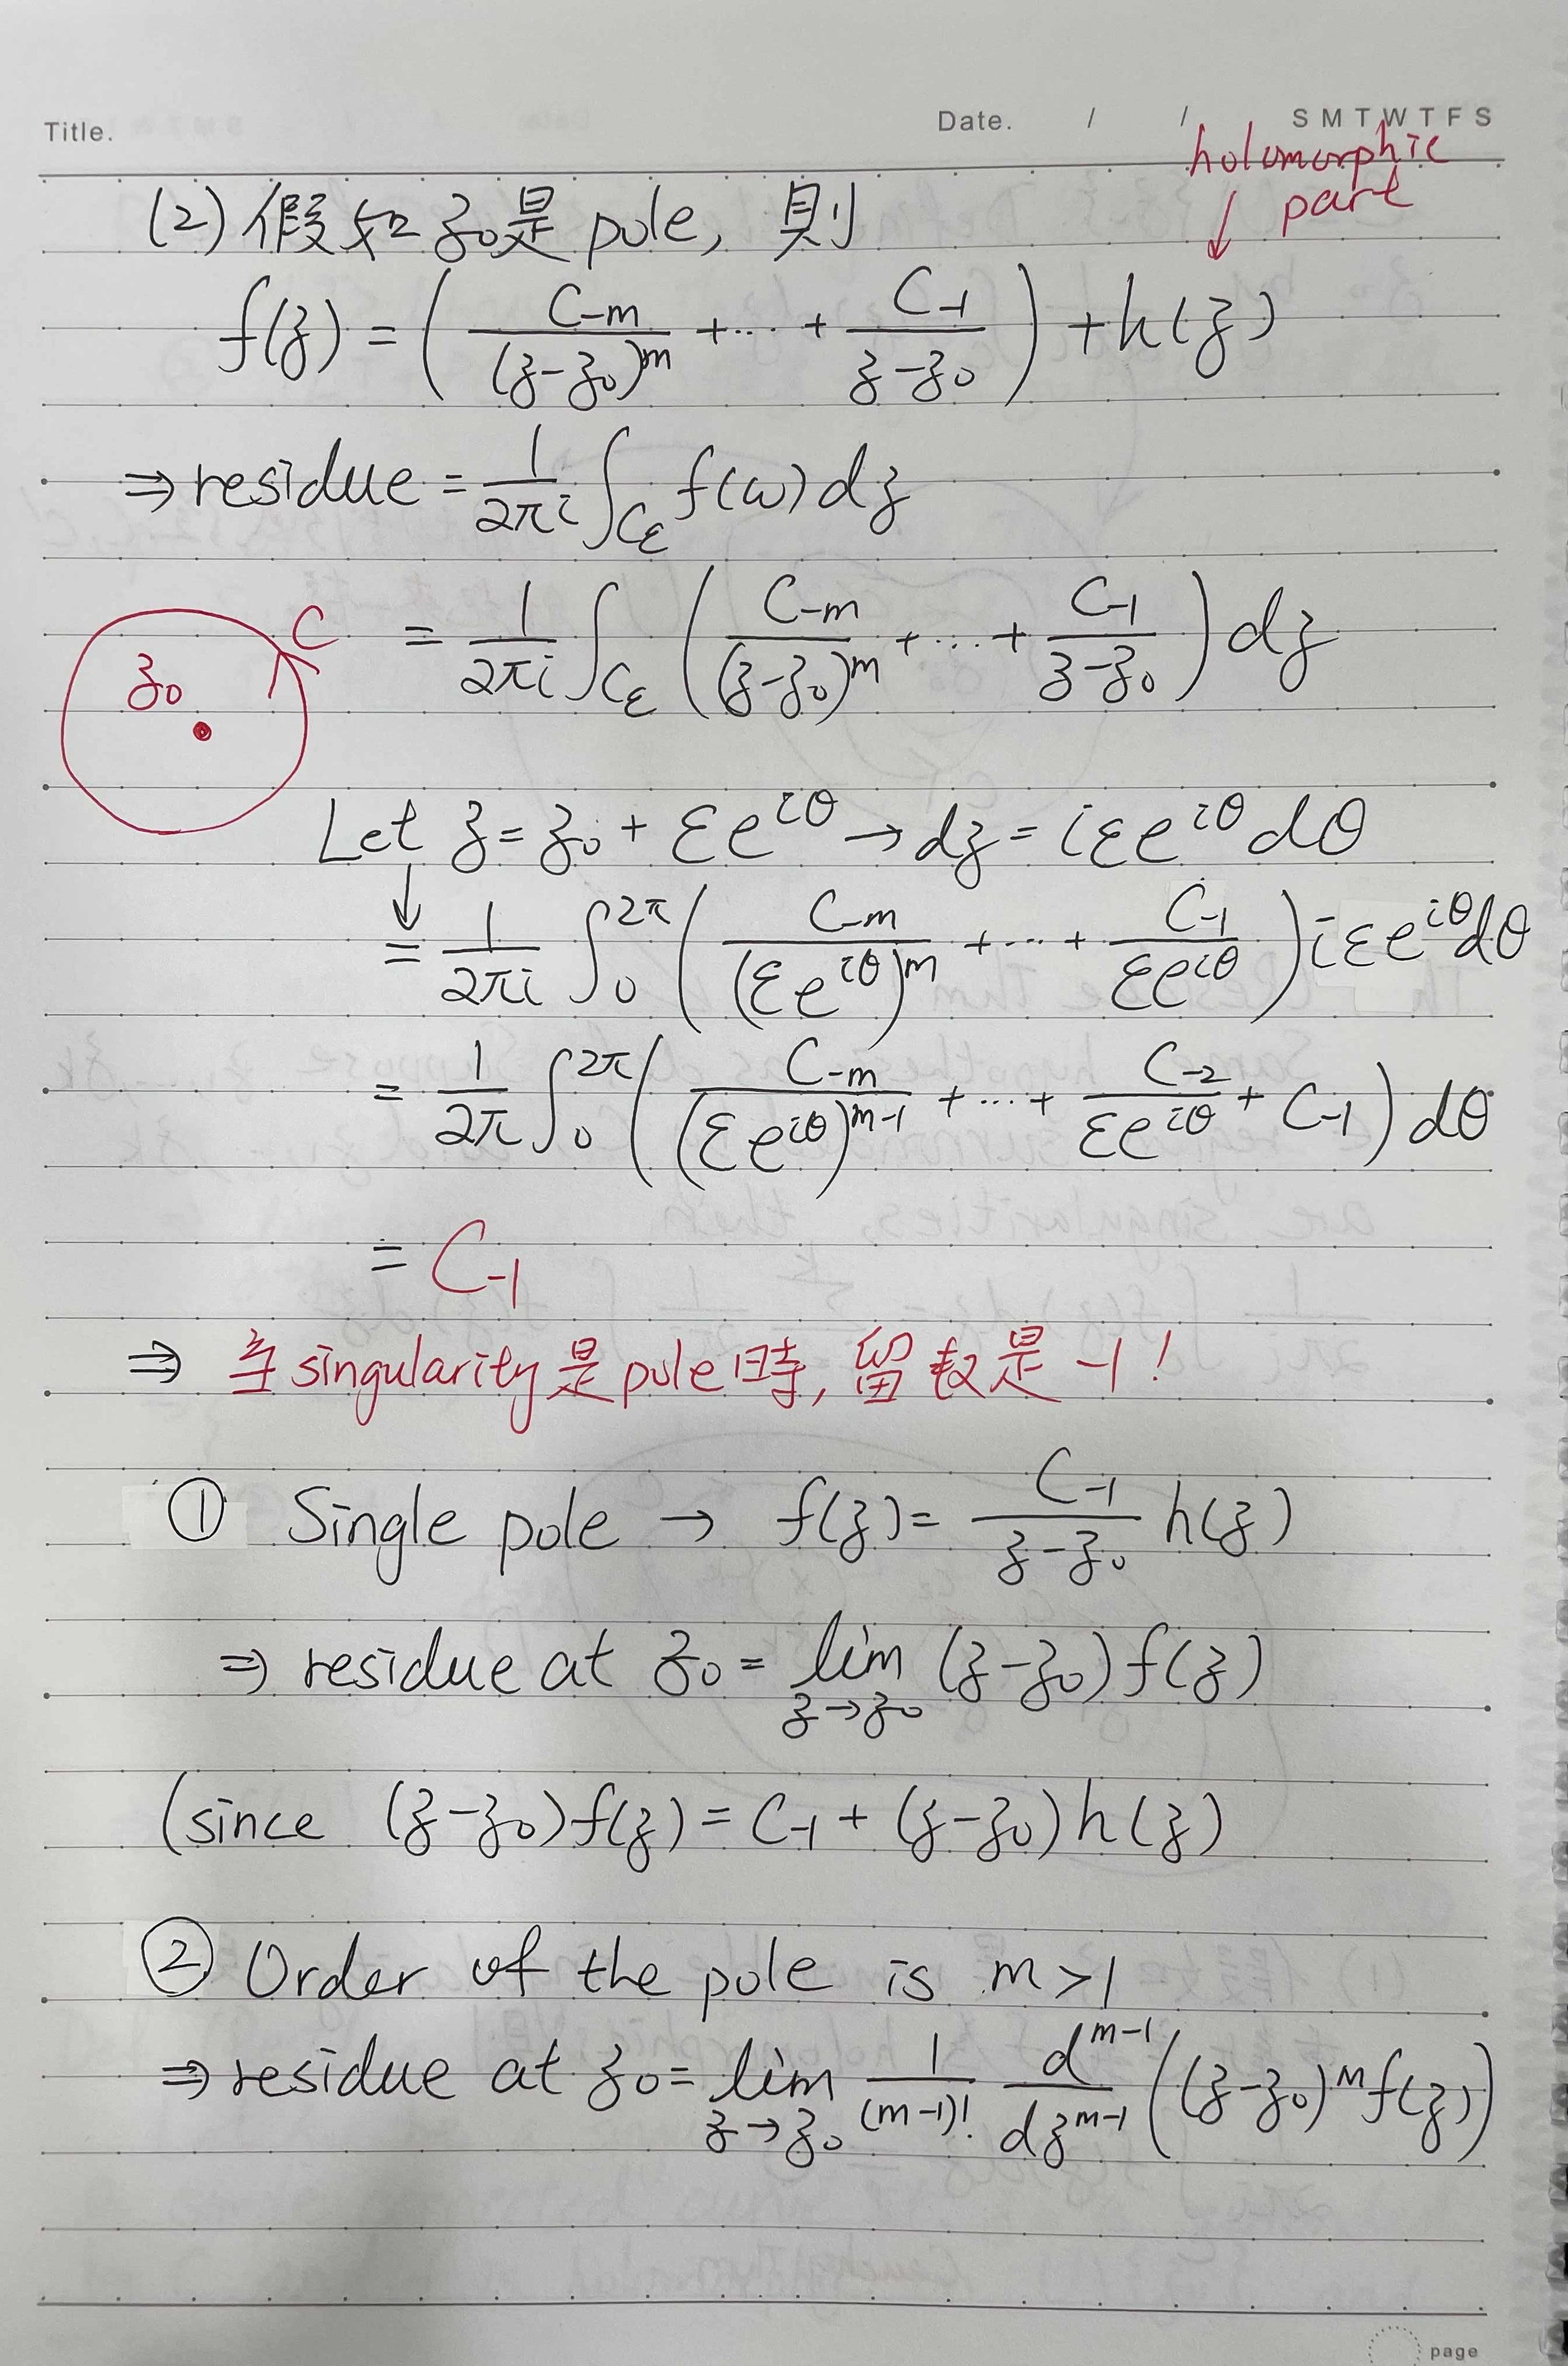 Title.
Date. / / S M T W T F S
holomorphic
part
↓
(2) 假如 z₀是 pole, 則
f(z) = ( C₋m/(z-z₀)^m + ... + C₋₁/(z-z₀) ) + h(z)
⇒ residue = 1/(2πi) ∫_{Cε} f(w) dz
= 1/(2πi) ∫_{Cε} ( C₋m/(z-z₀)^m + ... + C₋₁/(z-z₀) ) dz
C
z₀
Let z = z₀ + εe^{iθ} → dz = iεe^{iθ} dθ
↓
= 1/(2πi) ∫_0^{2π} ( C₋m/(εe^{iθ})^m + ... + C₋₁/(εe^{iθ}) ) iεe^{iθ} dθ
= 1/(2π) ∫_0^{2π} ( C₋m/(εe^{iθ})^{m-1} + ... + C₋₂/(εe^{iθ}) + C₋₁ ) dθ
= C₋₁
⇒ singularity是pole時, 留數是 -1!
① Single pole → f(z) = C₋₁/(z-z₀) h(z)
⇒ residue at z₀ = lim_{z→z₀} (z-z₀) f(z)
(since (z-z₀)f(z) = C₋₁ + (z-z₀) h(z)
② Order of the pole is m > 1
⇒ residue at z₀ = lim_{z→z₀} 1/(m-1)! d^{m-1}/dz^{m-1} ((z-z₀)^m f(z))
page